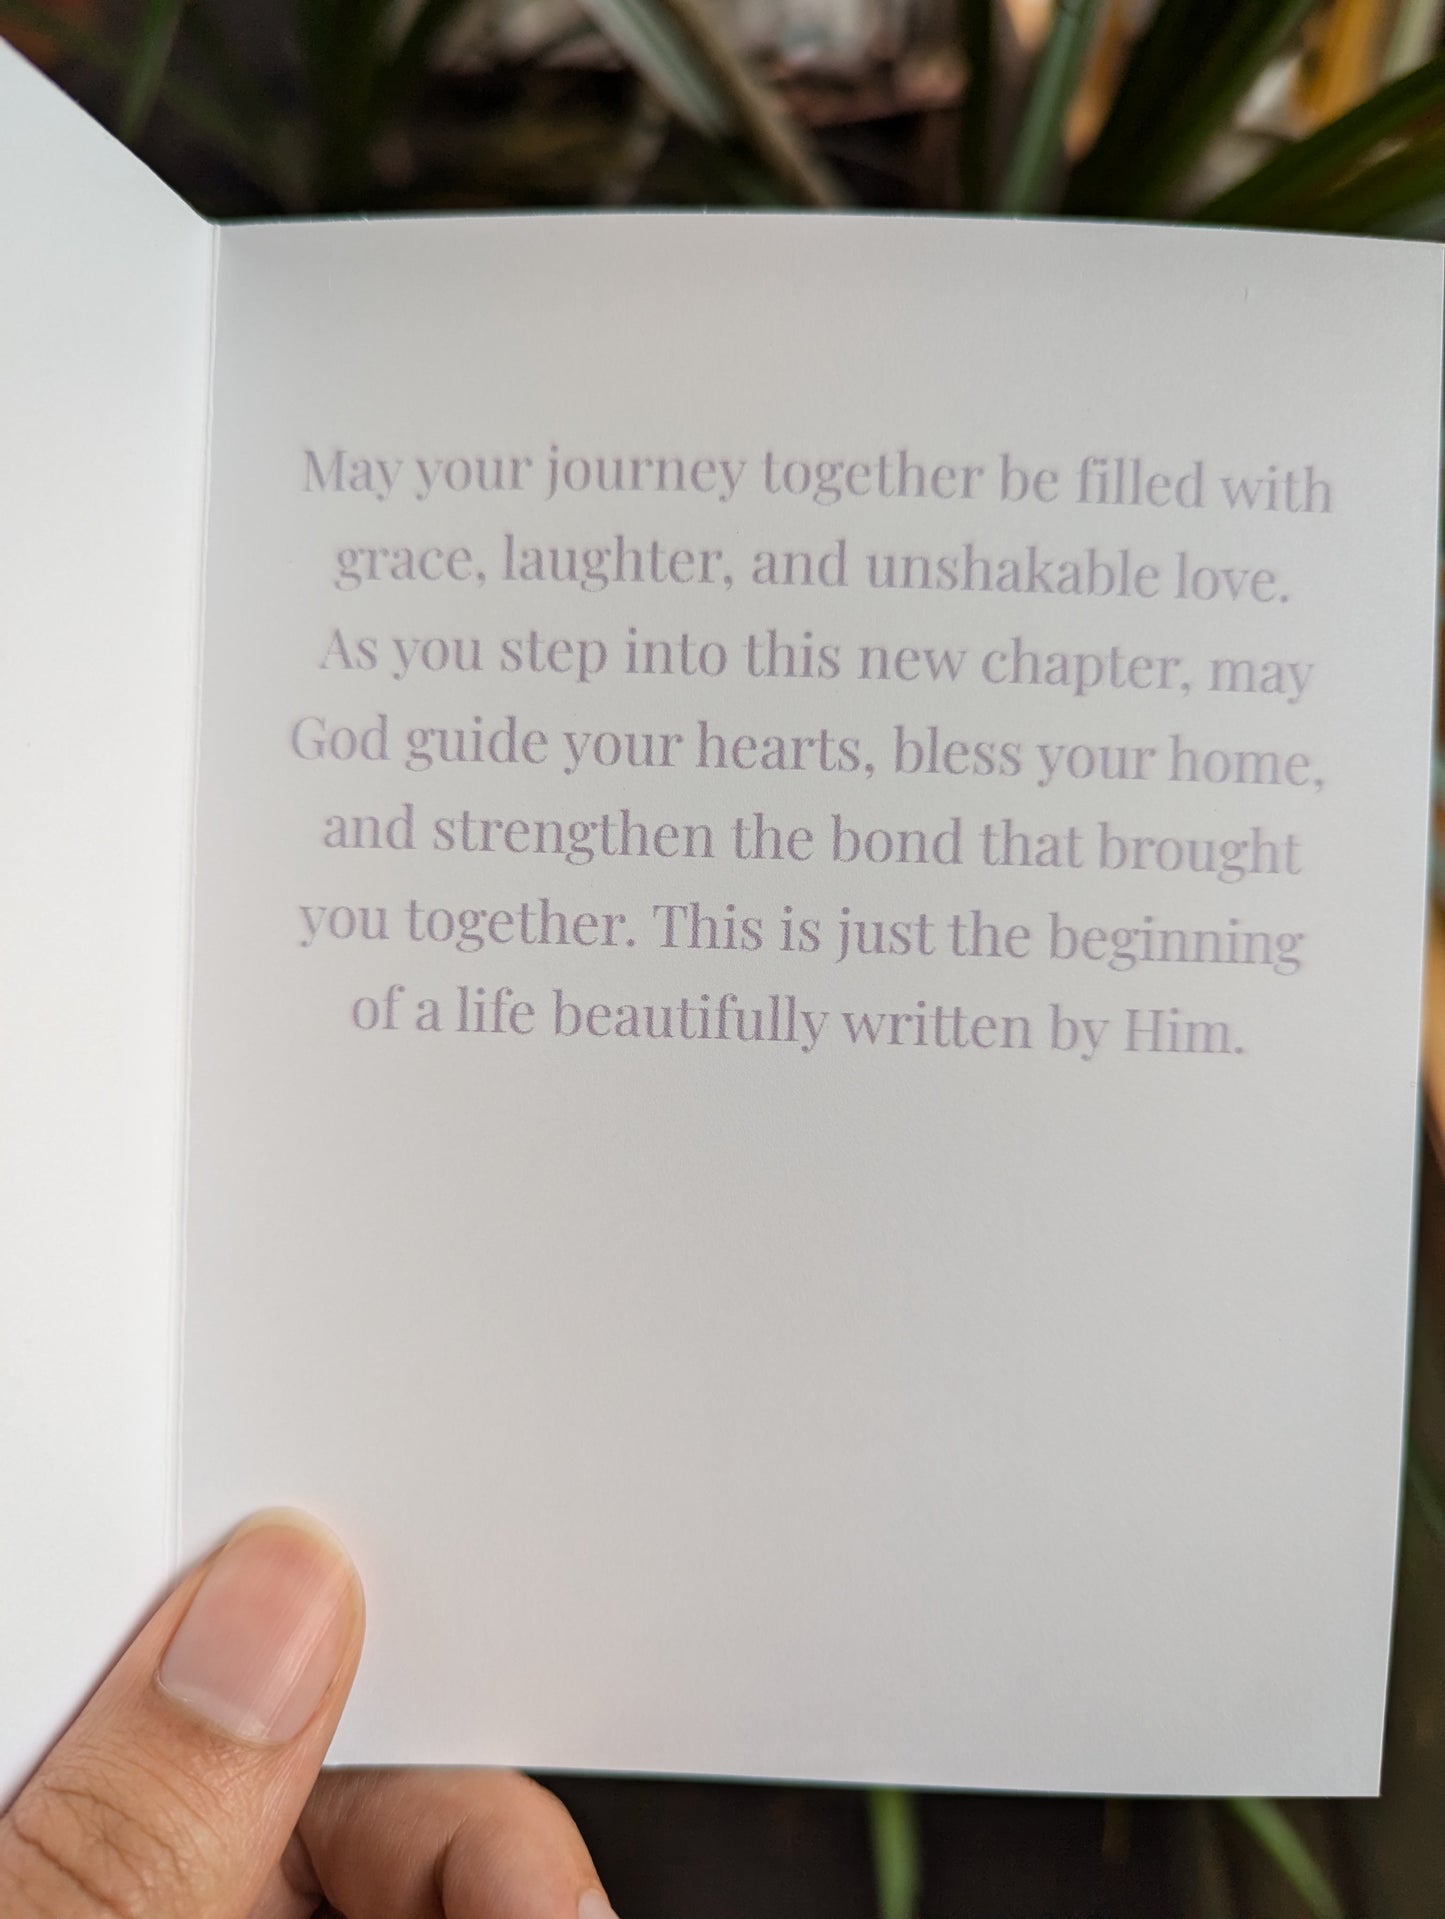 May your journey together be filled with
grace, laughter, and unshakable love.
As you step into this new chapter, may
God guide your hearts, bless your home,
and strengthen the bond that brought
you together. This is just the beginning
of a life beautifully written by Him.